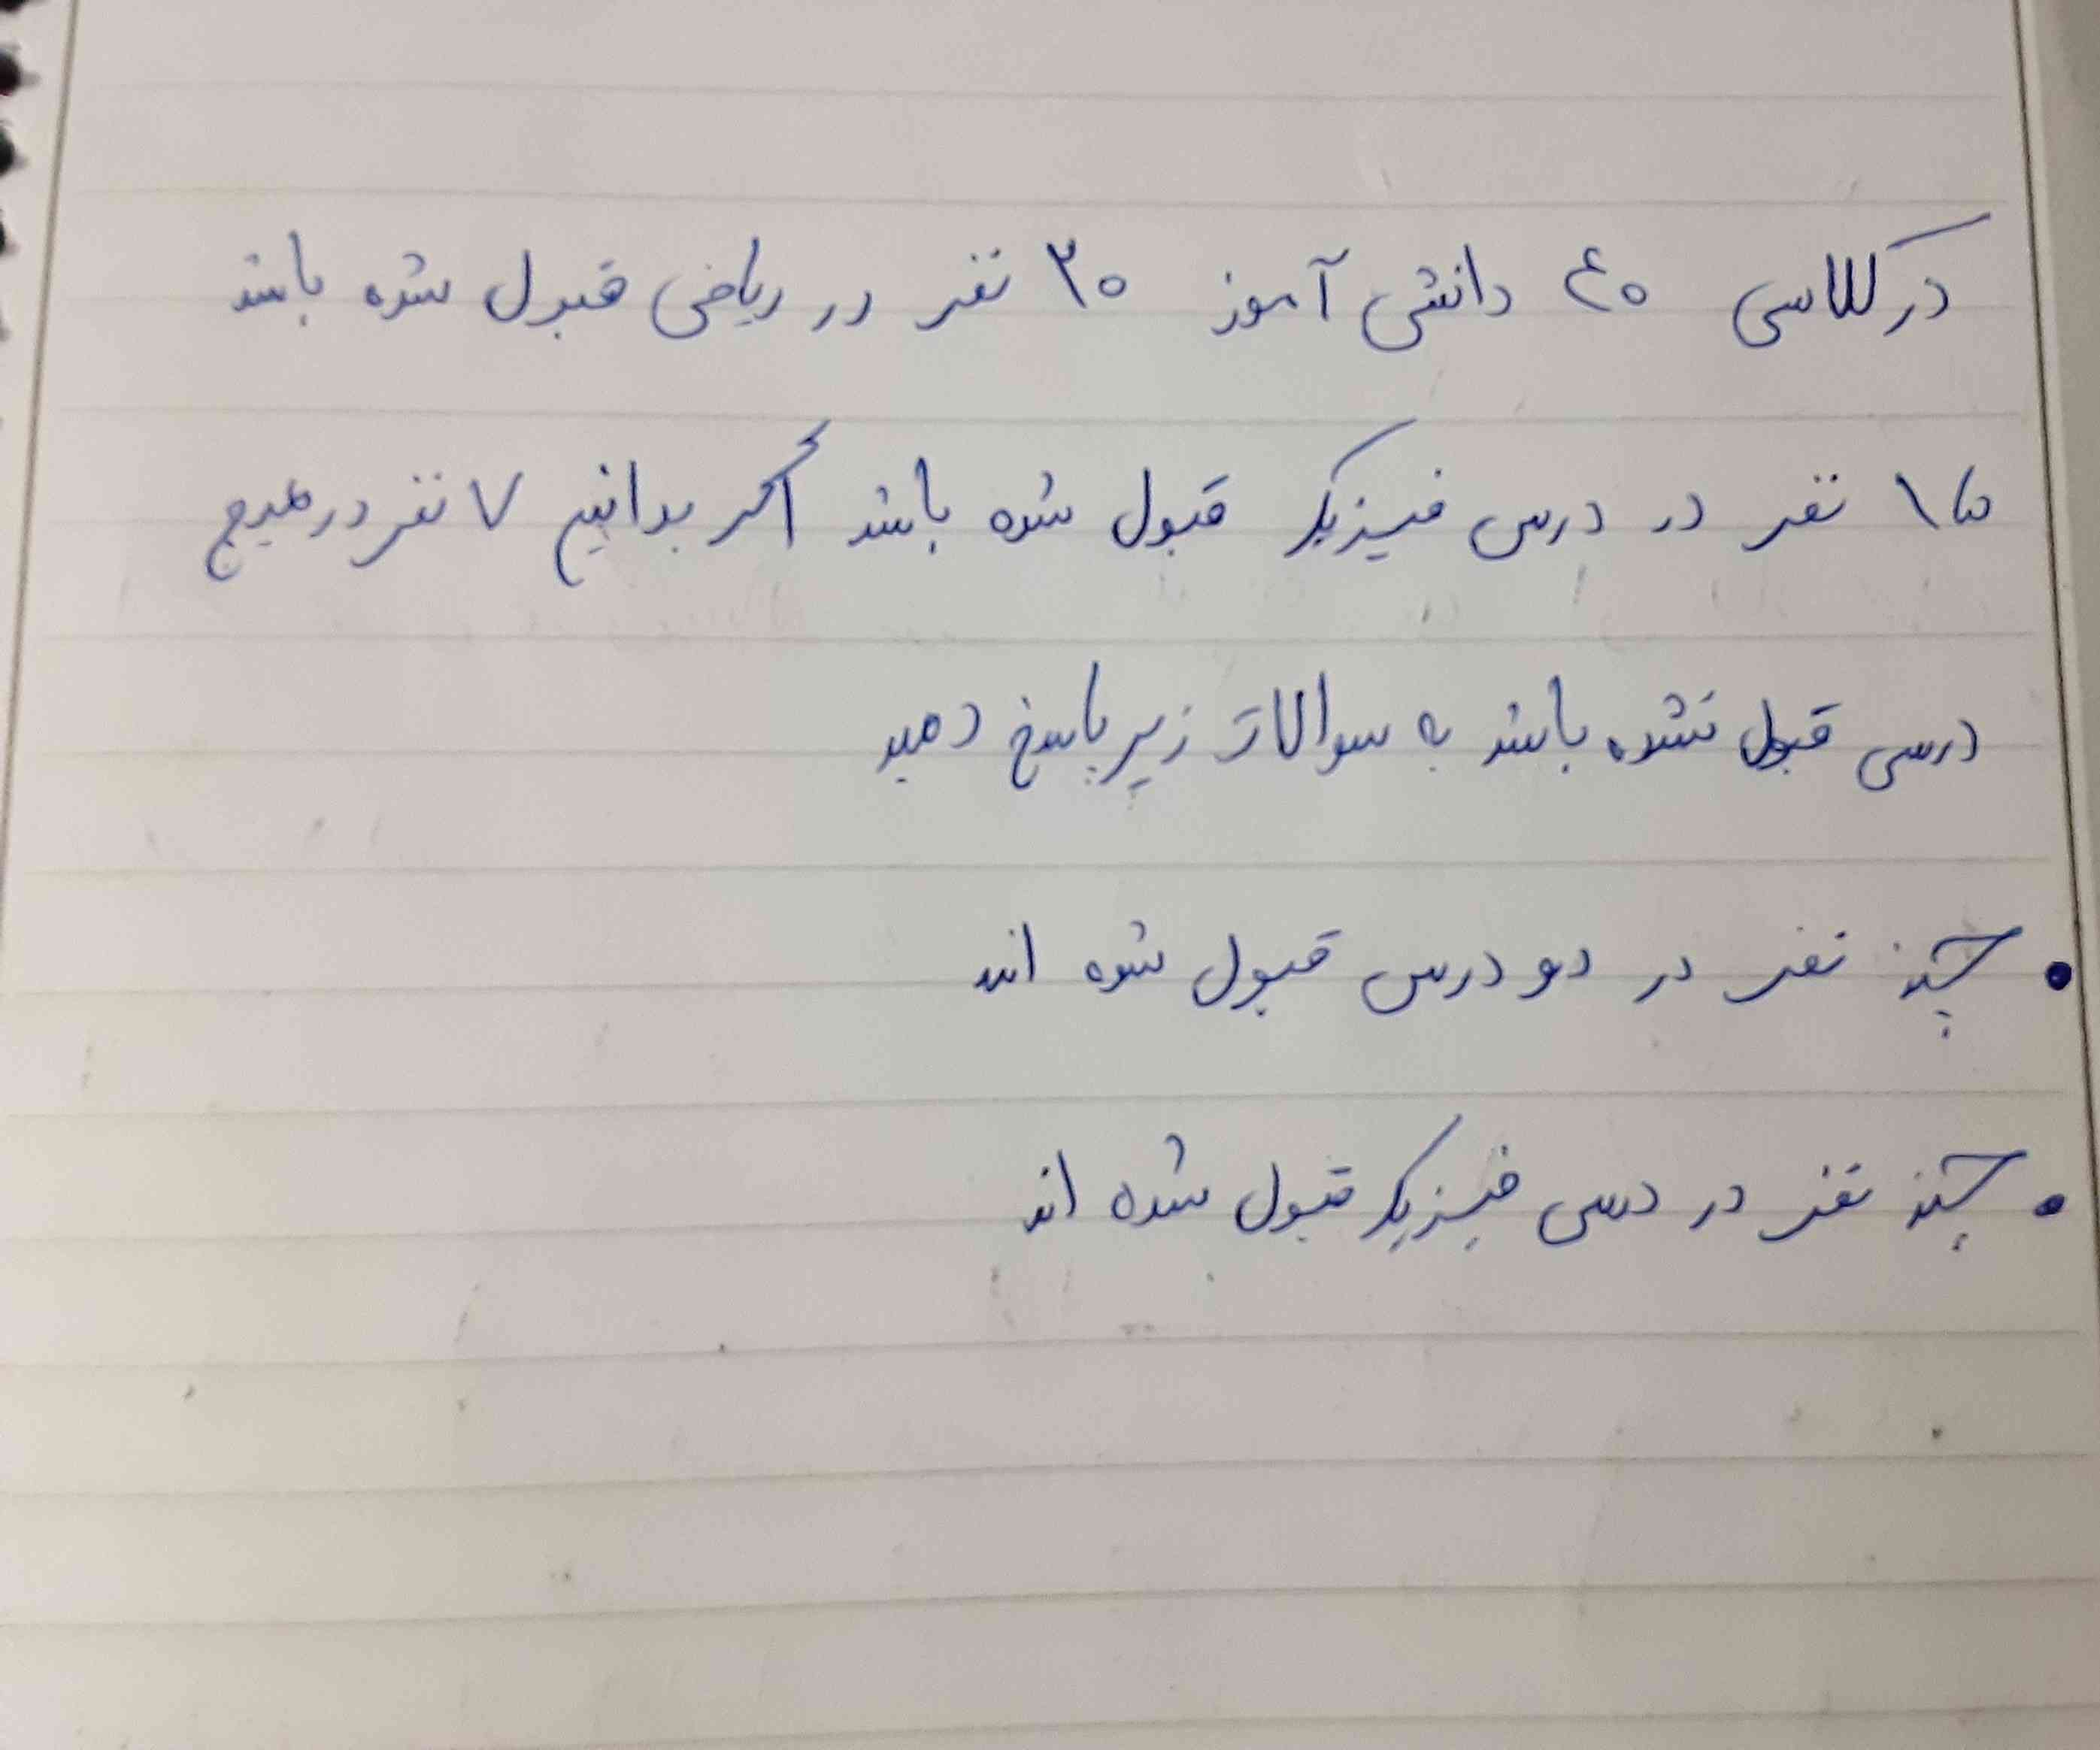 در کلاسی ۴۰ دانش آموز ۳۰ نفر در ریاضی قبول شده باشند
۱۵ نفر در درس فیزیک قبول شده باشند اگر بدانیم ۷ نفر در هیچ
درسی قبول نشده باشند به سوالات زیر پاسخ دهید
• چند نفر در دو درس قبول شده اند
• چند نفر در درس فیزیک قبول شده اند